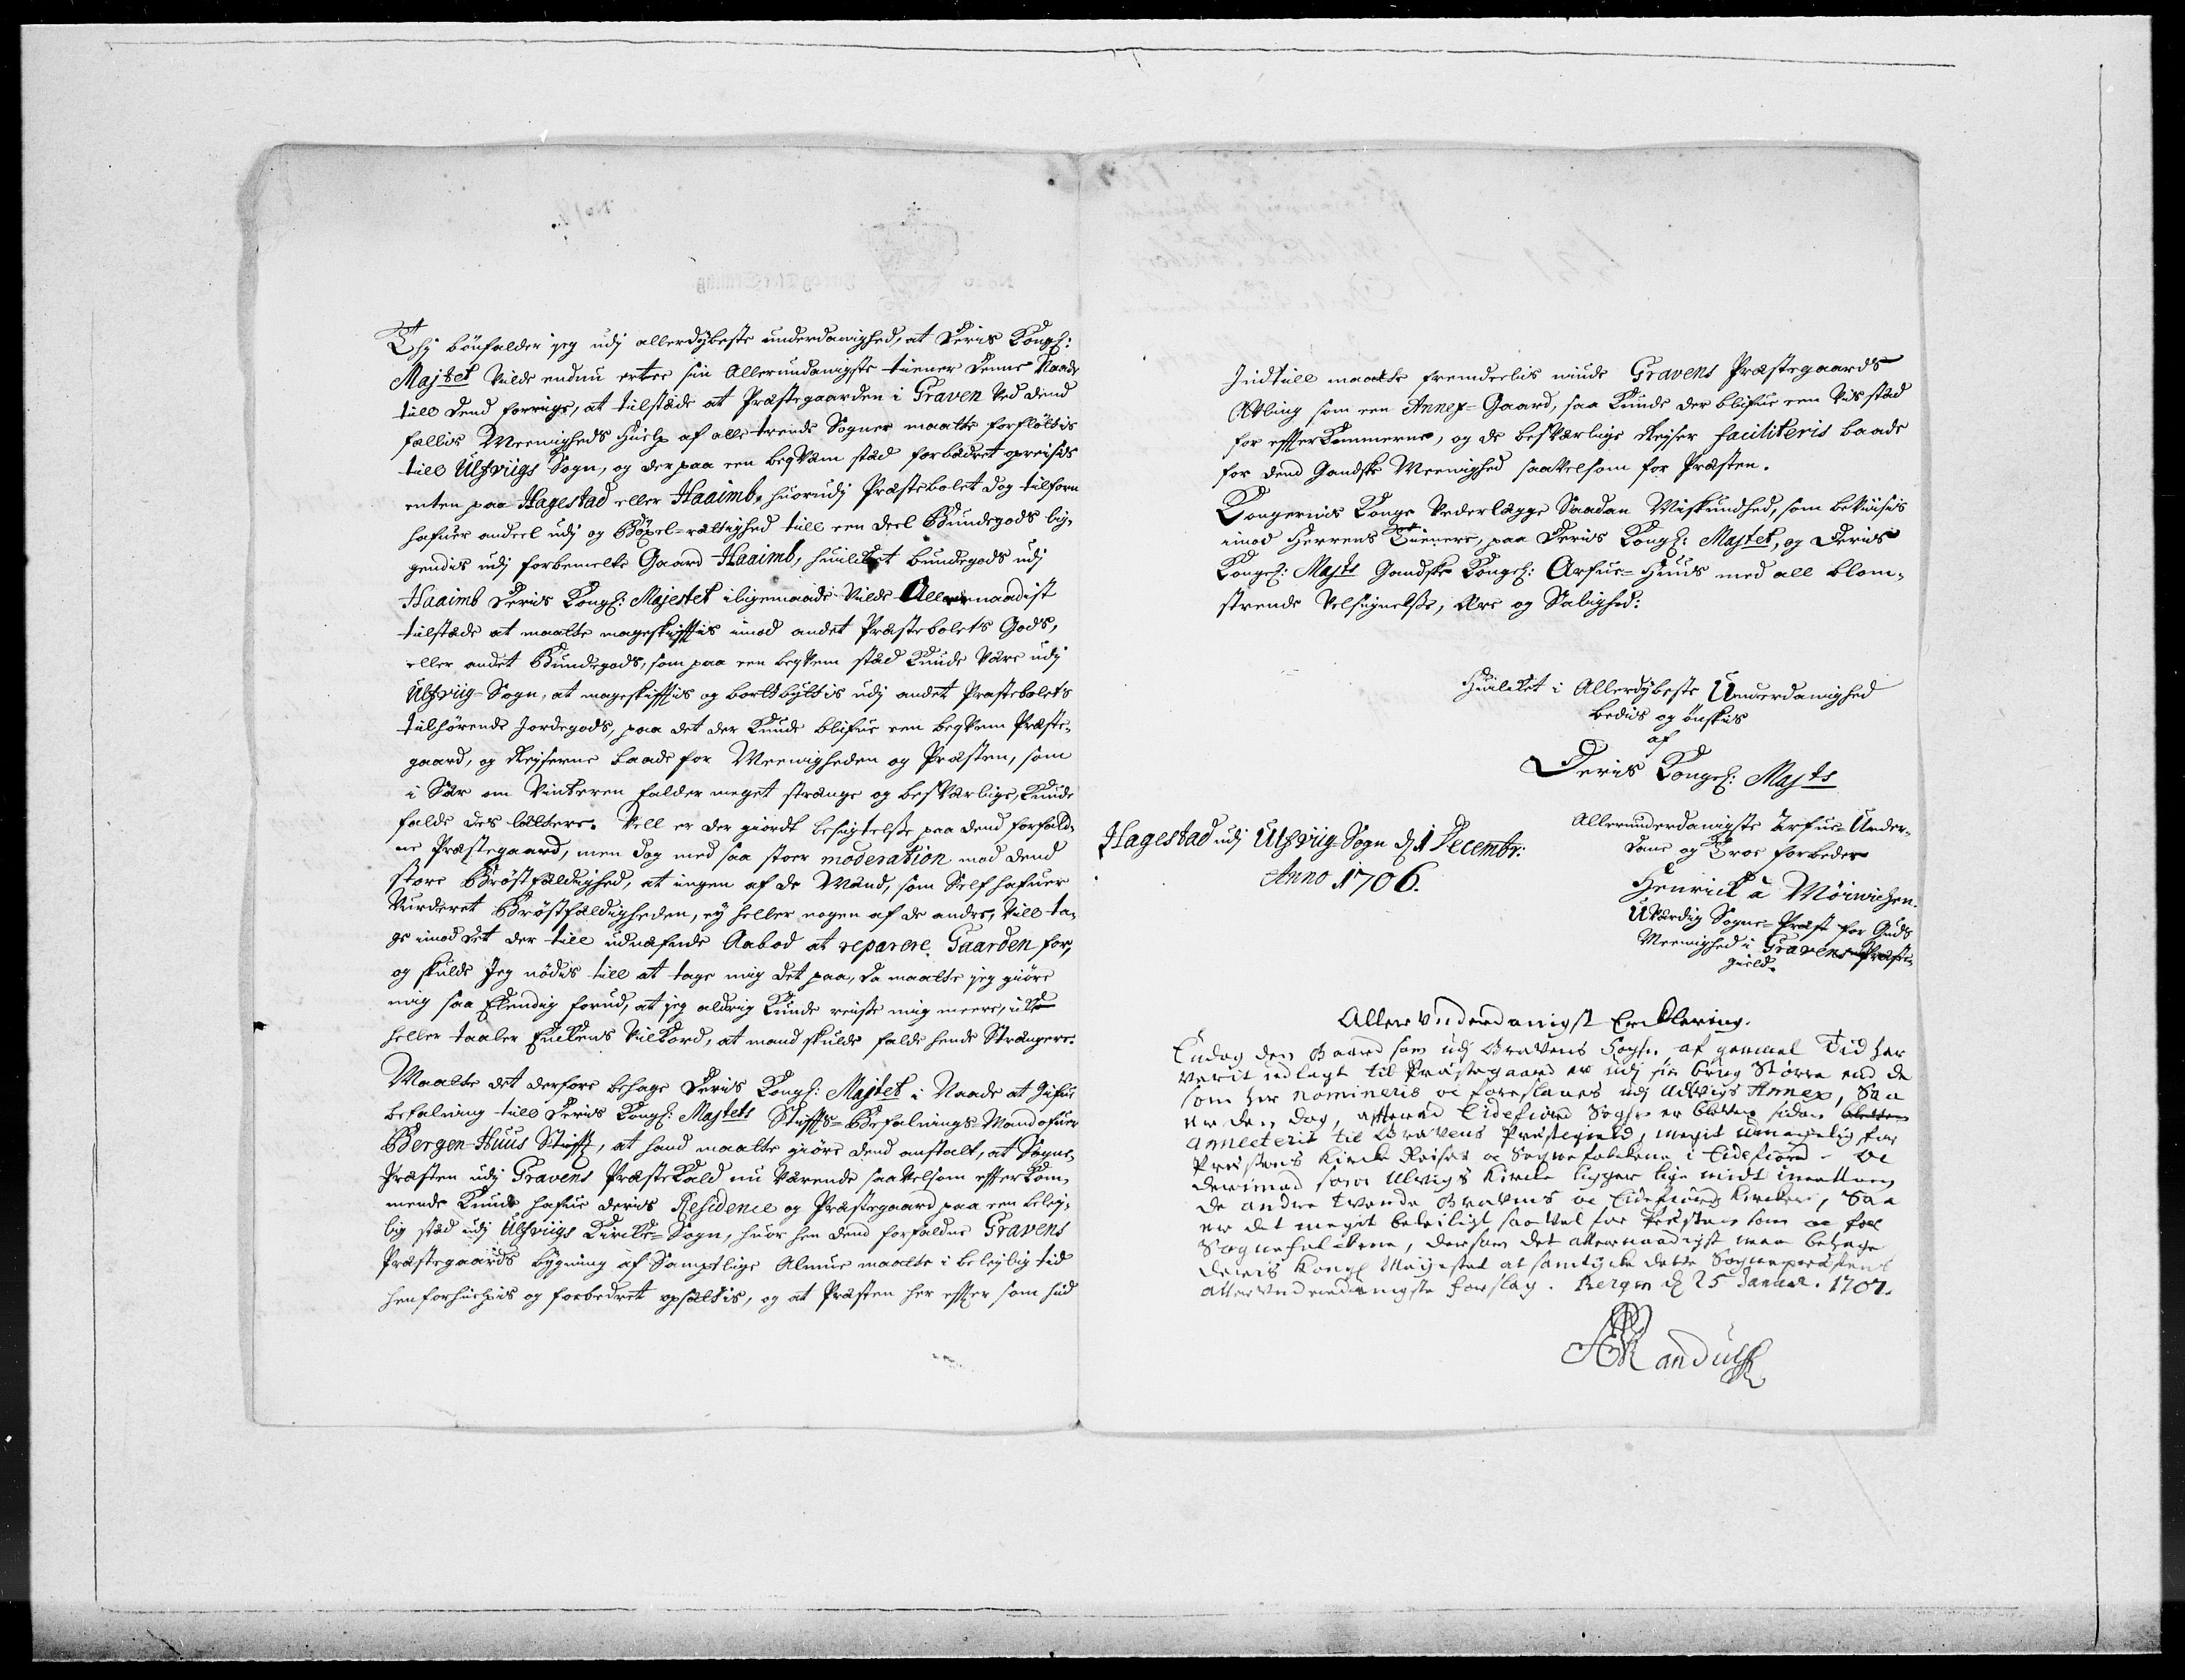 Thj bönfalder jeg udj allerdybeste underdanighed, at Deris Kongl:
Majtet Vilde endnu ertee sin Allerundanigste tiener denne Naade
till dend forrige, at tilstæde at Præstegaarden i Graven Ved dend
fællis Meenigheds Hielp af alle trende Sogner maatte forflöttis
till Ulfviigs Sogn, og der paa een beqvem stæd forbedret opreisis
enten paa Hagestad eller Haaimb, huorudj Præstebolet dog tilforn
hafuer andeel udj og Böxel-rættighed till een deel Bundegods lig-
gendis udj forbemelte Gaard Haaimb, huilcket bundegods udj
Haaimb Deris Kongl: Majestet iligemaade Vilde Allernaadist
tilstæde at maatte mageskifftis imod andet Præstebolets Gods,
eller andet Bundegods, som paa een beqvem stæd Kunde Være udj
Ulfviig-Sogn, at mageskifftis og bortbyttis udj andet Præstebolets
tilhörende Jordegods, paa det der Kunde blifue een beqvem Præste-
gaard, og Reyserne baade for Meenigheden og Præsten, som
i Sær om Vinteren falder meget strænge og besværlige, Kunde
falde des lættere. Vell er der giordt besigtelsse paa dend forfald-
ne Præstegaard, men dog med saa stoer moderation mod dend
store Bröstfældighed, at ingen af de Mænd, som Self hafuer
Vurderet Bröstfældigheden, ey heller nogen af de andre, Vill ta-
ge imod det der till udnæfnde Aabod at reparere Gaarden for,
og skulde Jeg nödis till at tage mig det paa, da maatte jeg giöre
mig saa Elendig forud, at jeg aldrig Kunde reisse mig meere, icke
heller taaler Enckens Vilkord, at mand skulde falde hende Strængere.
Maatte det derfore behage Deris Kongl: Majtet i Naade at Gifue
befalning till Deris Kongl: Majtets Stiffts-Befalnings-Mand ofuer
Bergen-Huus Stifft, at hand maatte giöre dend anstalt, at Sogne-
Præsten udj Gravens Præstekald nu Værende saavelsom effterkom-
mende Kunde hafue deris Residence og Præstegaard paa een beley-
lig stæd udj Ulfviigs Kircke-Sogn, huor hen dend forfaldne Gravens
Præstegaards bygning af Samptlige Almue maatte i beleylig tid
henforhielpis og forbedret opsættis, og at Præsten her effter som hid
Indtill maatte fremdeelis niude Gravens Præstegaards
Afling som een Annex-Gaard, saa Kunde der blifue een Vis stæd
for effterkommerne, og de besværlige Reyser faciliteris baade
for dend Gandske Meenighed saavelsom for Præsten.
Kongernis Konge Vederlægge Saadan Miskundhed, som beviisis
imod Herrens Tienere, paa Deris Kongl: Majtet, og Deris
Kongel: Majts Gandske Kongel: Arfue-Huus med all blom-
strende Velsignelsse, Ære og Salighed:
Huilcket i Allerdybeste Underdanighed
bedis og önskis
af
Deris Kongel: Majts
Allerunderdanigste Arfue-Under-
dane og Troe forbeder
Hagestad udj Ulfviig-Sogn dj 1 Decembr:
Anno 1706.
Henrick à Möinichen.
UVærdig Sogne-Præst for Guds
Meenighed i Gravens Præste-
gield.
Allerunderdanigst Erklering.
Endog den Gaard som udj Gravens Sogn, af gammel Tid har
verit udlagt til Præstegaard er udj sin brug Större end de
som her nomineris oc foreslaaes udj Ulvigs Annex, Saa
er den dog, efftersom Eidefiord Sogn er bleven siden
annecterit til Gravens Præstegield, megit umagelig for
Præstens Kircke Reiser oc Sognefolckene i Eidefiord - Oc
derimod som Ulvigs Kircke ligger lige midt imellem
de andre tvende Gravens oc Eidefiords Kircker, Saa
er det megit beleiligt saavel for Præsten som oc for
Sognefolckene, dersom det allernaadigst maa behage
deris Kongl Mayestet at samtycke dette Sognepræstens
allerunderdanigste forslag. Bergen d 25 Januar. 1707.
Randulff